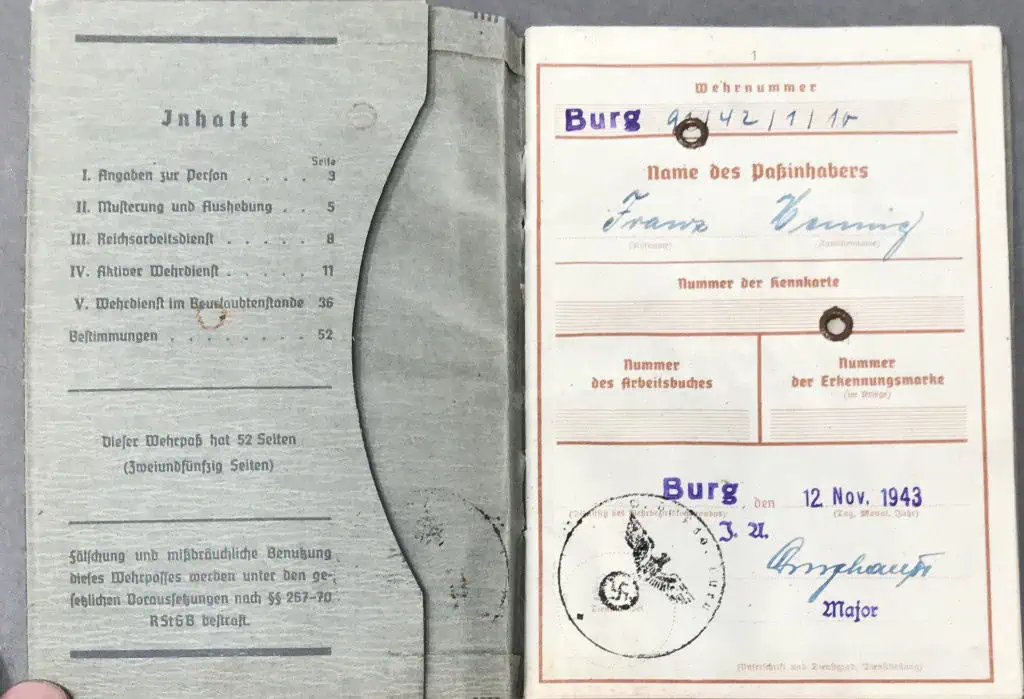 Inhalt
Seite
I. Angaben zur Person . . . . 3
II. Musterung und Aushebung . . 5
III. Reichsarbeitsdienst . . . . . 8
IV. Aktiver Wehrdienst . . . . . 11
V. Wehrdienst im Beurlaubtenstande 36
Bestimmungen . . . . . . . . 52
Dieser Wehrpaß hat 52 Seiten
(Zweiundfünfzig Seiten)
Fälschung und mißbräuchliche Benutzung
dieses Wehrpasses werden unter den ge-
setzlichen Voraussetzungen nach §§ 267-70
RStGB bestraft.
1
Wehrnummer
Burg 42/1/10
Name des Paßinhabers
Franz Hennig
(Vorname) (Familienname)
Nummer der Kennkarte
Nummer
des Arbeitsbuches
Nummer
der Erkennungsmarke
(im Kriege)
Burg, den 12. Nov. 1943
(Tag, Monat, Jahr)
J. A.
Major
(Unterschrift und Dienstgrad, Dienststellung)